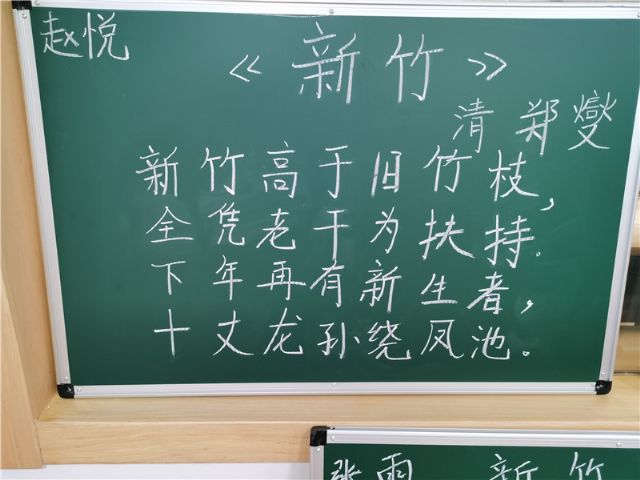 赵悦
《新竹》
清 郑燮
新竹高于旧竹枝，
全凭老干为扶持。
下年再有新生者，
十丈龙孙绕凤池。
张雨 新竹